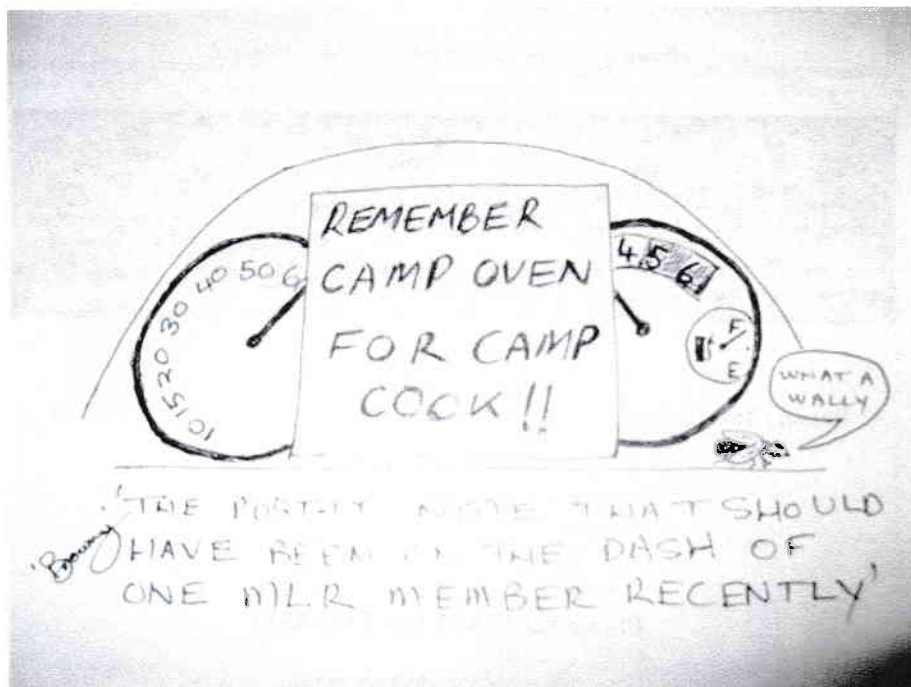 REMEMBER
CAMP OVEN
FOR CAMP
COOK!!
10 15 20 30 40 50 6
4 5 6
F
E
WHAT A
WALLY
'THE POST-IT NOTE THAT SHOULD
HAVE BEEN ON THE DASH OF
ONE MLR MEMBER RECENTLY'